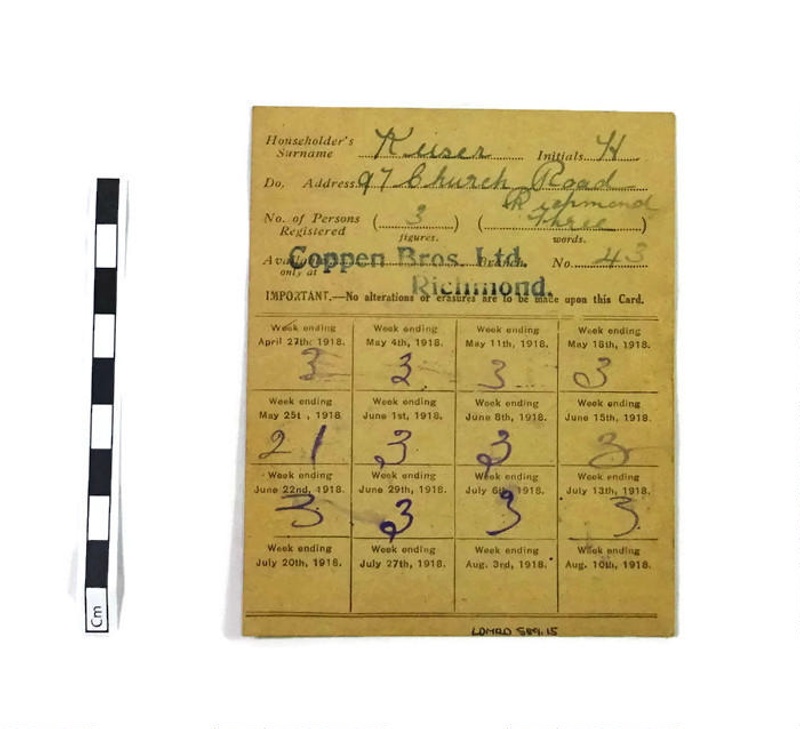 Householder's Surname Keiser Initials H
Do. Address 97 Church Road
Richmond
No. of Persons Registered ( 3 ) ( Three )
figures. words.
Available only at Branch. No. 43
Coppen Bros. Ltd.
Richmond.
IMPORTANT.—No alterations or erasures are to be made upon this Card.
Week ending Week ending Week ending Week ending
April 27th, 1918. May 4th, 1918. May 11th, 1918. May 18th, 1918.
3 3 3 3
Week ending Week ending Week ending Week ending
May 25t , 1918. June 1st, 1918. June 8th, 1918. June 15th, 1918.
2 1 3 3 3
Week ending Week ending Week ending Week ending
June 22nd, 1918. June 29th, 1918. July 6th, 1918. July 13th, 1918.
3 3 3 3
Week ending Week ending Week ending Week ending
July 20th, 1918. July 27th, 1918. Aug. 3rd, 1918. Aug. 10th, 1918.
LDMRD 589.15
Cm